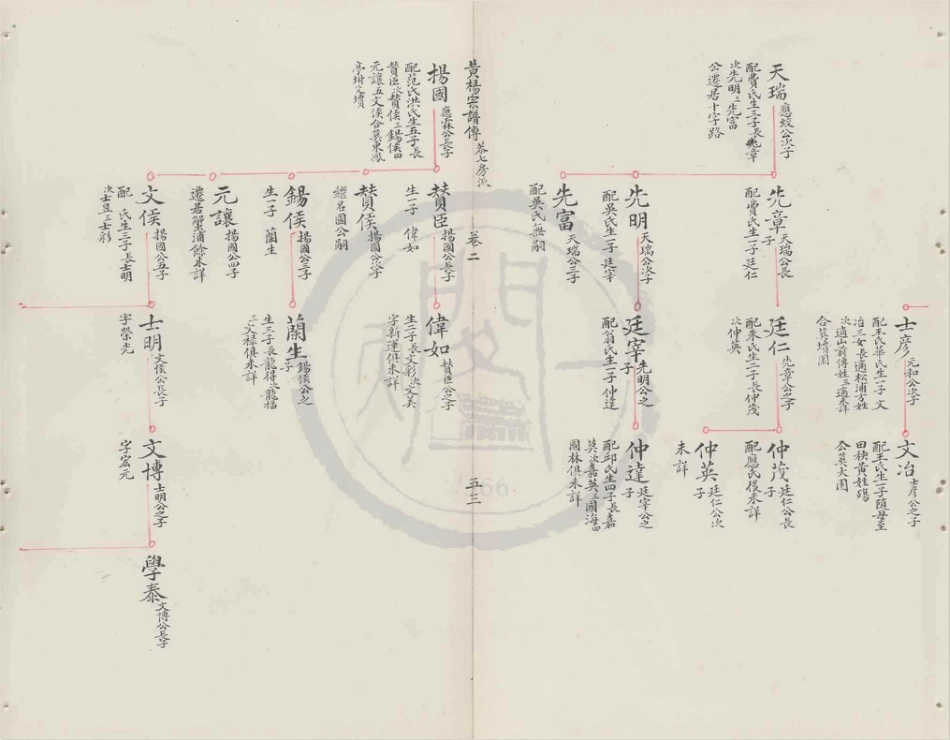 天瑞
應蛟公次子
配費氏生三子長先章
次先明三先富
公遷居十字路
先章
天瑞公長
子
配費氏生一子廷仁
先明
天瑞公次子
配吳氏生一子廷宰
先富
天瑞公三子
配吳氏無嗣
士彥
元和公次子
配王氏華氏生一子文
冶三女長適松浦方姓
次適山前傅姓三適未詳
合葬墳園
廷仁
先章公之子
配朱氏生二子長仲茂
次仲英
廷宰
先明公之
子
配翁氏生一子仲達
文冶
士彥公之子
配王氏生一子隨母至
田秧黃姓殤
公葬大園
仲茂
廷仁公長
子
配應氏後未詳
仲英
廷仁公次
子
未詳
仲達
廷宰公之
子
配邱氏生四子長嘉
英次嘉英三國海四
國林俱未詳
黃楊宗譜傳
恭七房派
卷二
五三
揚國
應霖公長子
配范氏洪氏生五子長
贊臣次贊侯三錫侯四
元讓五文侯合葬東鳳
亭坿父墳
贊臣
揚國公長子
生一子 偉如
贊侯
揚國公次子
繼名國公嗣
錫侯
揚國公三子
生一子 蘭生
元讓
揚國公四子
遷居蟹浦餘未詳
文侯
揚國公五子
配 氏生三子長士明
次士昱三士彩
偉如
贊臣公之子
生二子長文彩次文美
字新連俱未詳
蘭生
錫侯公之
子
生三子長龍得次龍福
三文祿俱未詳
士明
文侯公長子
字榮光
文博
士明公之子
字宏元
學泰
文博公長子